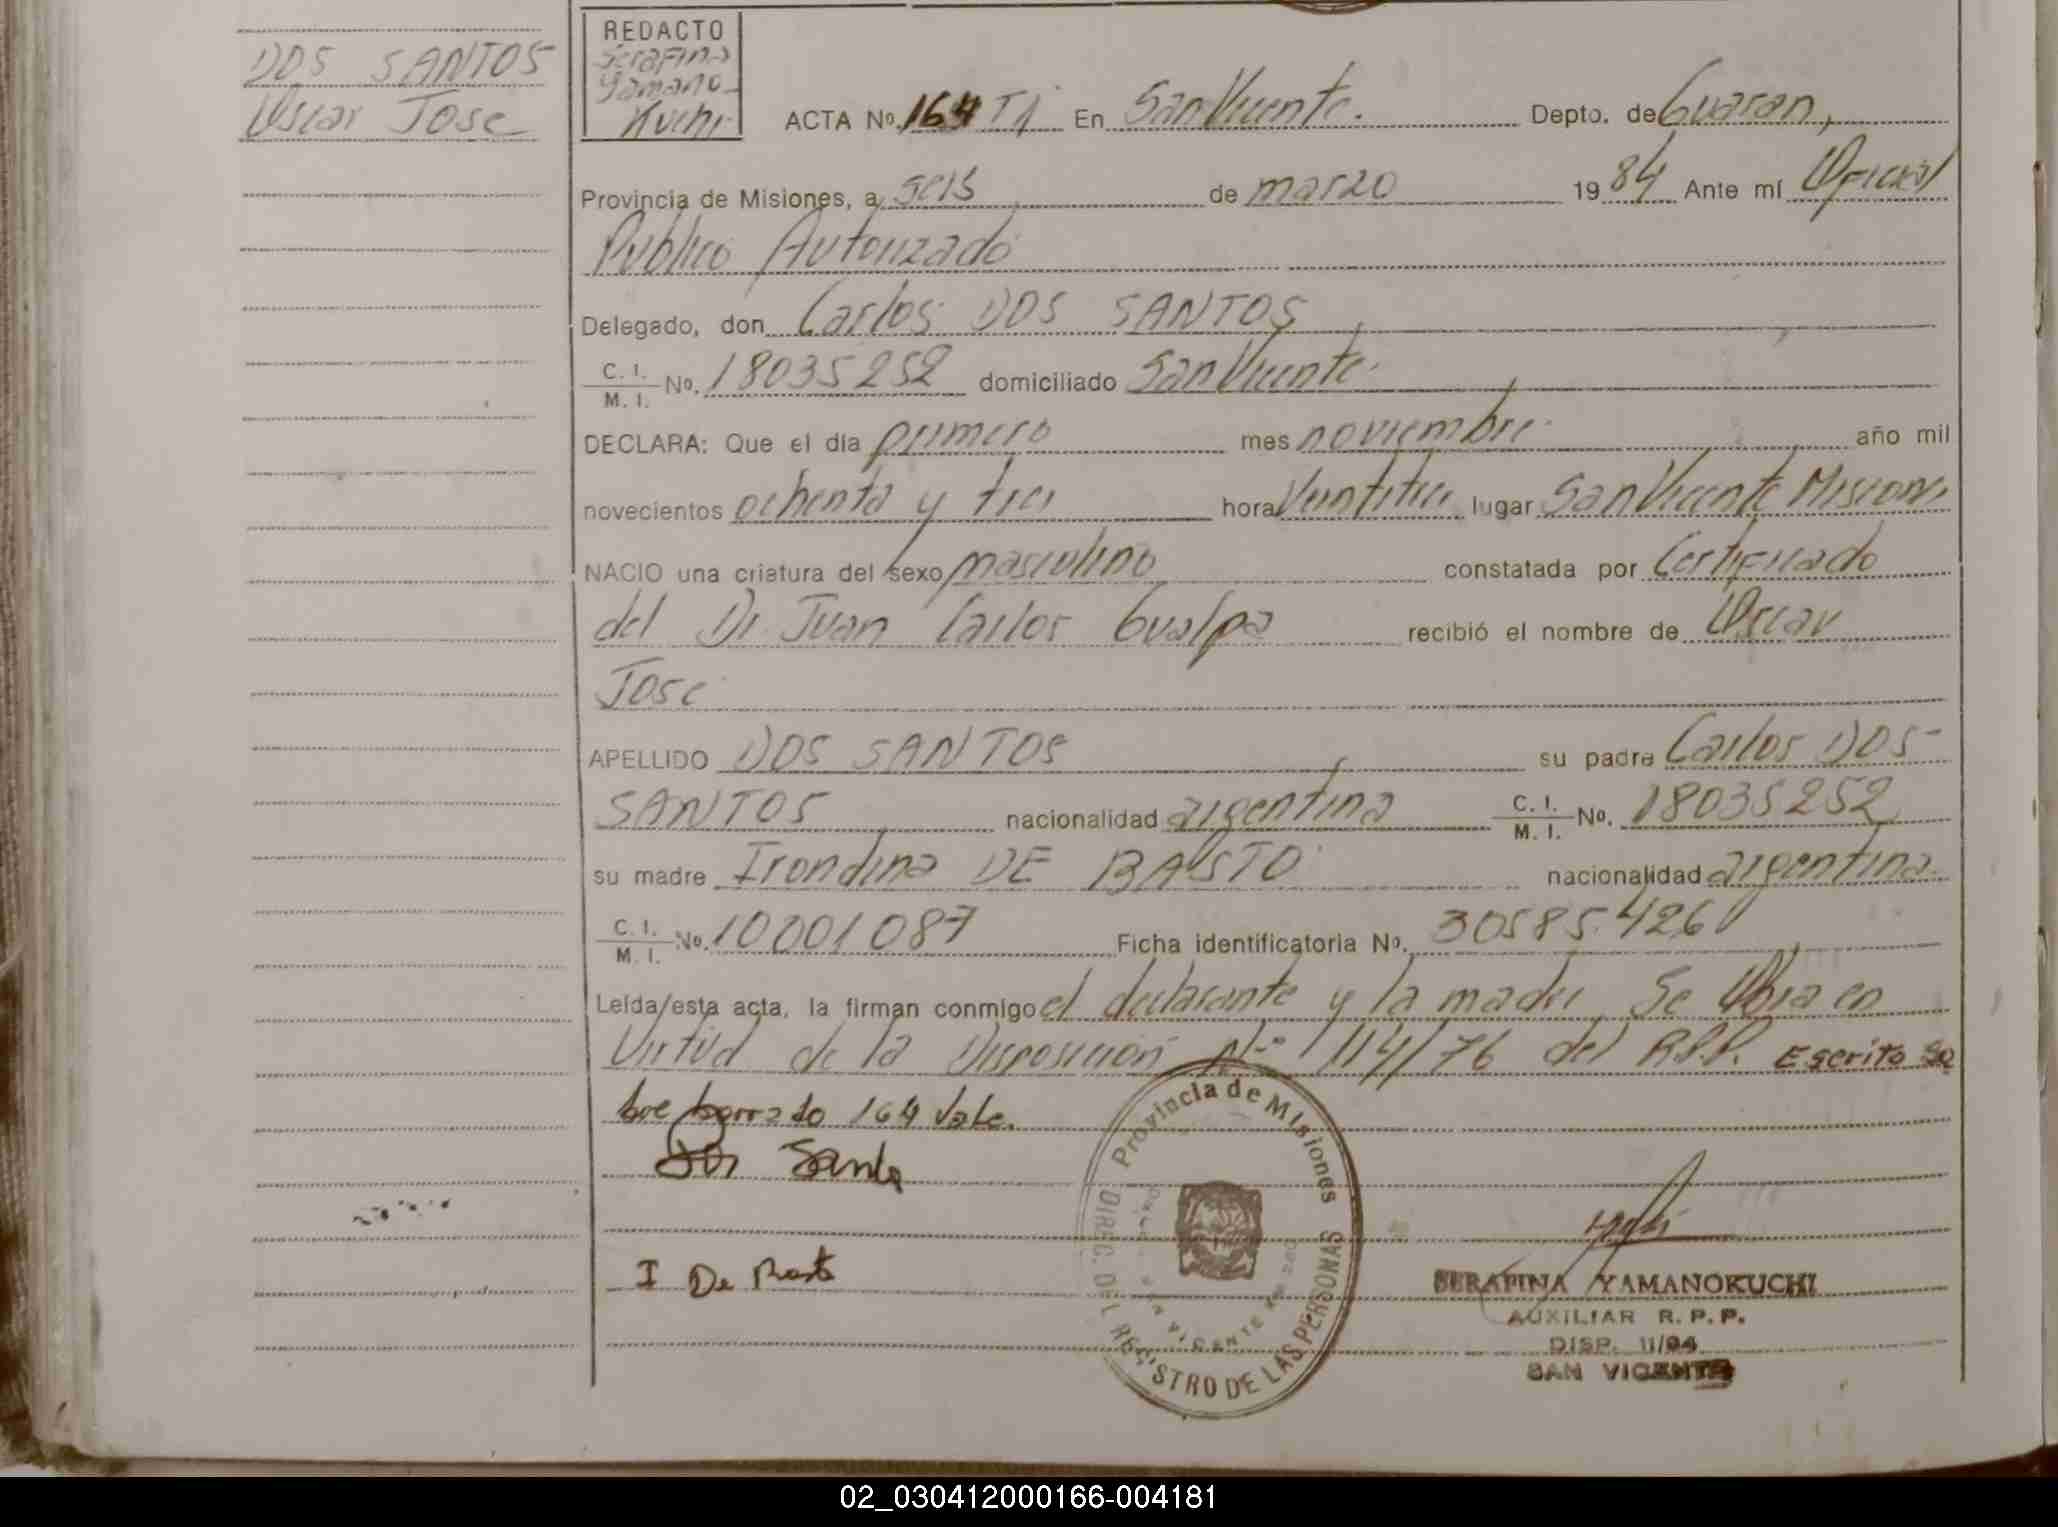 DOS SANTOS
Oscar Jose
REDACTO
Serafina
Yamano-
Kuchi
ACTA Nº. 164 TI En San Vicente. Depto. de Guaraní,
Provincia de Misiones, a seis de marzo 19 84 Ante mí Oficial
Publico Autorizado
Delegado, don Carlos DOS SANTOS
C. I.
M. I. Nº. 18035252 domiciliado San Vicente.
DECLARA: Que el día primero mes noviembre año mil
novecientos ochenta y tres hora Veintitres lugar San Vicente Misiones
NACIO una criatura del sexo masculino constatada por Certificado
del Dr. Juan Carlos Gualpa recibió el nombre de Oscar
Jose
APELLIDO DOS SANTOS su padre Carlos DOS
SANTOS nacionalidad argentina C. I.
M. I. Nº. 18035252
su madre Irondina DE BASTO nacionalidad argentina
C. I.
M. I. Nº. 10001087 Ficha identificatoria Nº. 30585.426
Leída esta acta, la firman conmigo el declarante y la madre Se Obra en
Virtud de la Disposición Nº 114/76 del R.P.P. Escrito so
bre borrado 164 Vale.
Dos Santos
I De Basto
Provincia de Misiones
DIREC. DEL REGISTRO DE LAS PERSONAS
SAN VICENTE
SERAFINA YAMANOKUCHI
AUXILIAR R. P. P.
DISP. 11/84
SAN VICENTE
02_030412000166-004181